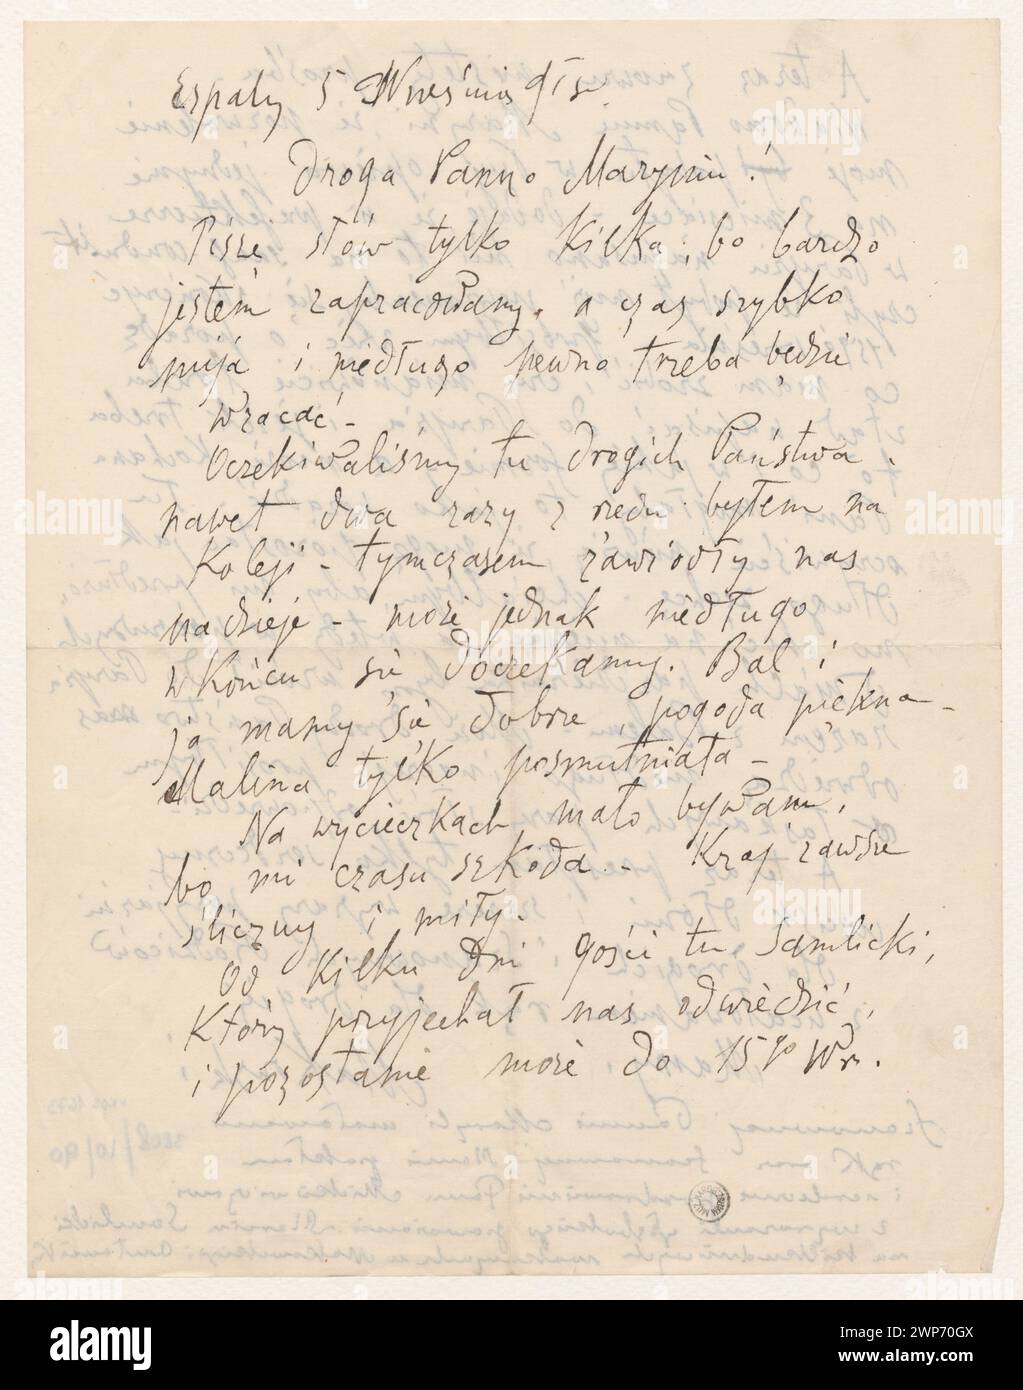 Espaly 5 Września 912
Droga Panno Maryniu!
Piszę słów tylko kilka, bo bardzo
jestem zapracowany, a czas szybko
mija i niedługo pewno trzeba będzie
wracać -
Oczekiwaliśmy tu drogich Państwa.
nawet dwa razy z rzędu byłem na
Koleji - tymczasem zawiodły nas
nadzieje - może jednak niedługo
w końcu się doczekamy. Bal i
ja mamy się dobrze, pogoda piękna -
Malina tylko posmutniała -
Na wycieczkach mało bywam,
bo mi czasu szkoda. - Kraj zawsze
śliczny i miły.
Od kilku dni gości tu Samlicki,
Który przyjechał nas odwiedzić,
i pozostanie może do 15go Wr.
alamy
www.alamy.com
Image ID: 2WP70GX